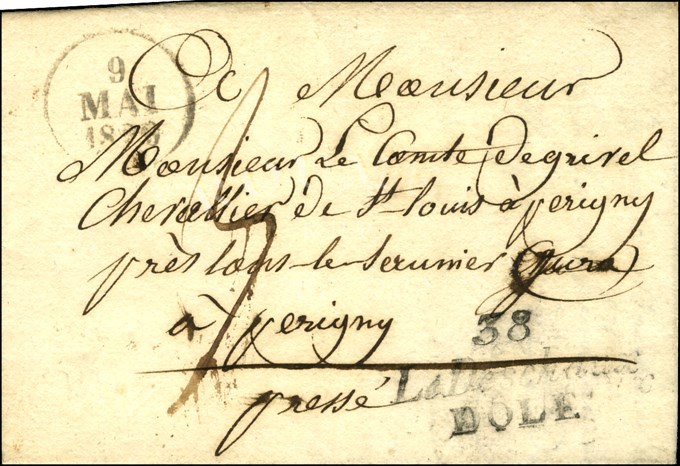 9
MAI
A Monsieur
Monsieur Le Comte de grivel
Chevallier de St louis à perigny
près lons-le-Seaunier Jura
à perigny
pressé
38
DOLE